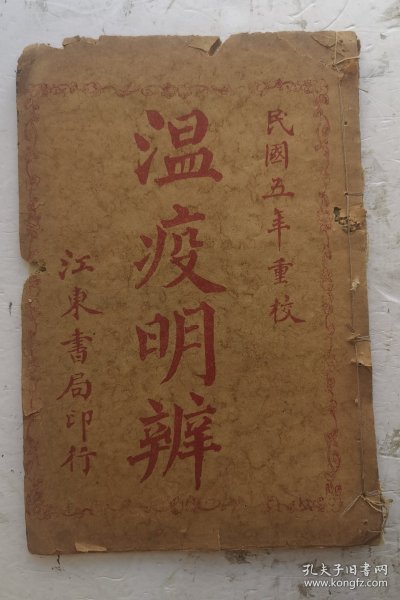 民國五年重校
温疫明辨
江東書局印行
孔夫子旧书网
www.kongfz.com